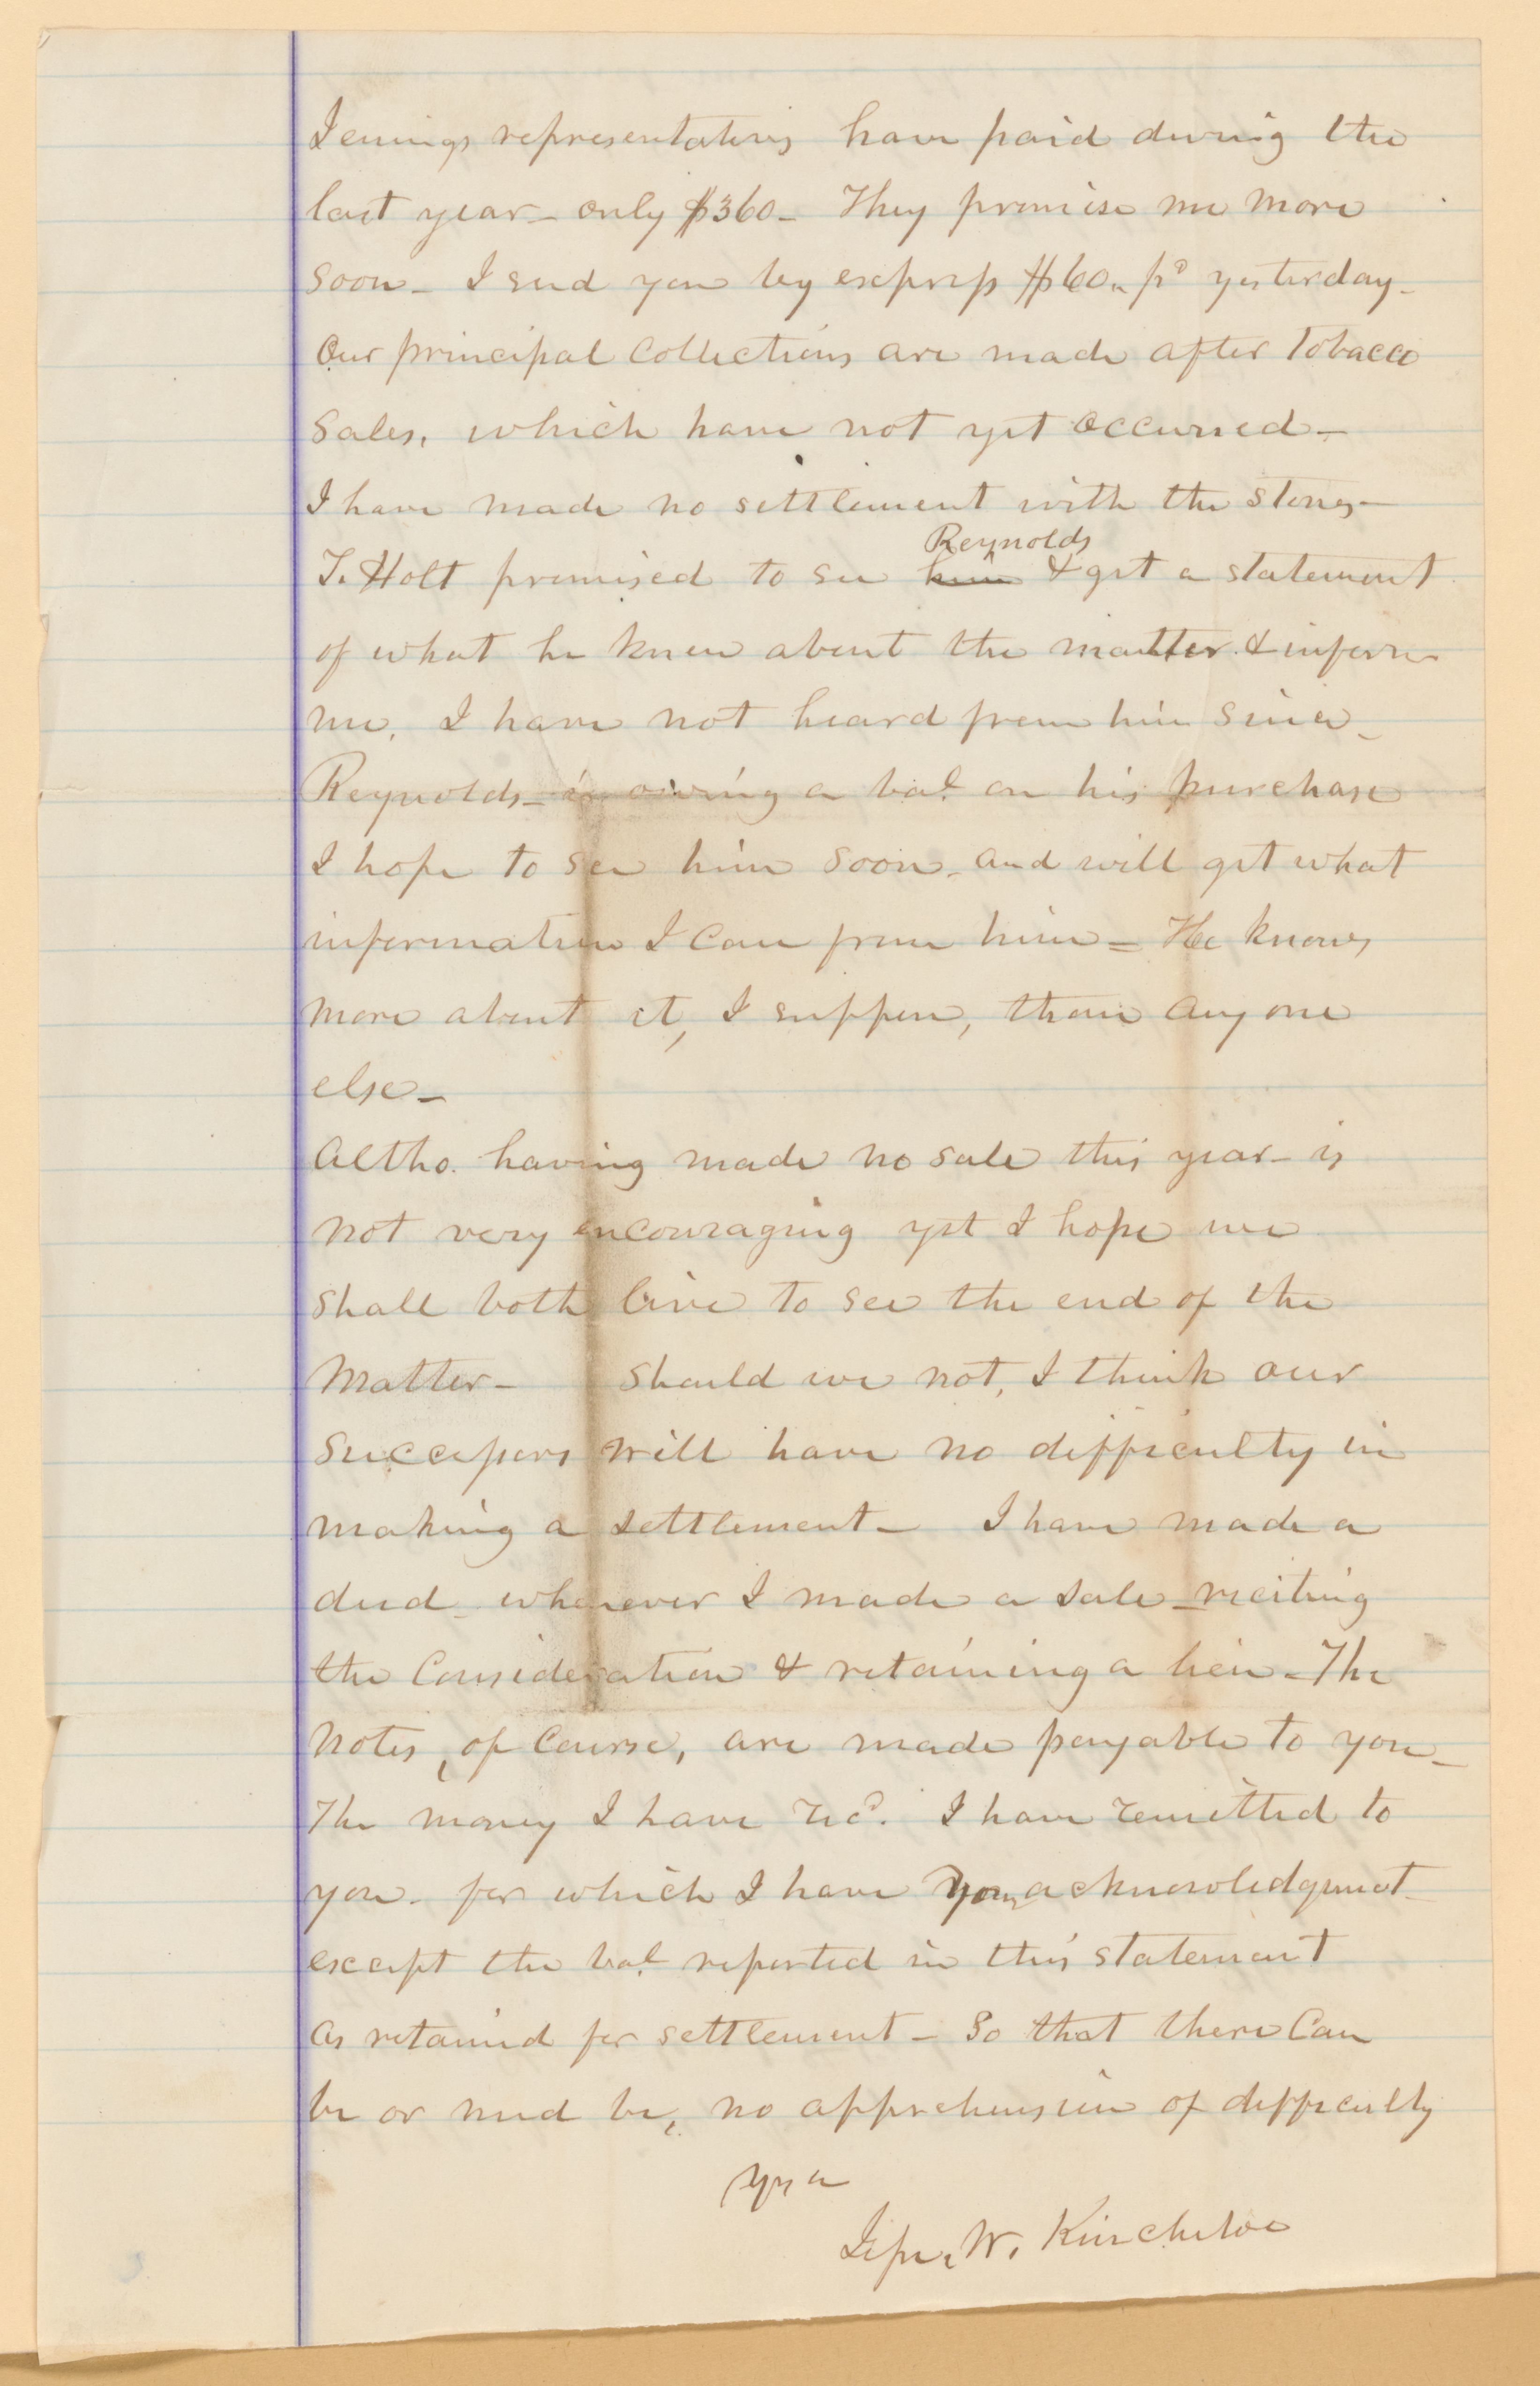 Jennings representatives have paid during the
last year – only $360 – They promise me more
soon – I send you by express $60 – pd yesterday –
Our principal Collections are made after Tobacco
Sales, which have not yet occurred –
I have made no settlement with the Stones –
T. Holt promised to see him Reynolds & get a statement
of what he knew about the matter & inform
me, I have not heard from him since –
Reynolds – is owing a bal on his purchase
I hope to see him soon – and will get what
information I can from him – He knows
more about it, I suppose, than any one
else –
Altho. having made no sale this year – is
not very encouraging yet I hope we
shall both live to see the end of the
Matter – Should we not, I think our
Successors will have no difficulty in
making a settlement – I have made a
deed – whenever I made a sale – reciting
the Consideration & retaining a lien – The
Notes, of Course, are made payable to you –
The money I have recd. I have remitted to
you – for which I have your acknowledgment –
except the bal reported in this statement
as retained for settlement – So that there Can
be or need be, no apprehension of difficulty
Yrs
Jesse W. Kincheloe